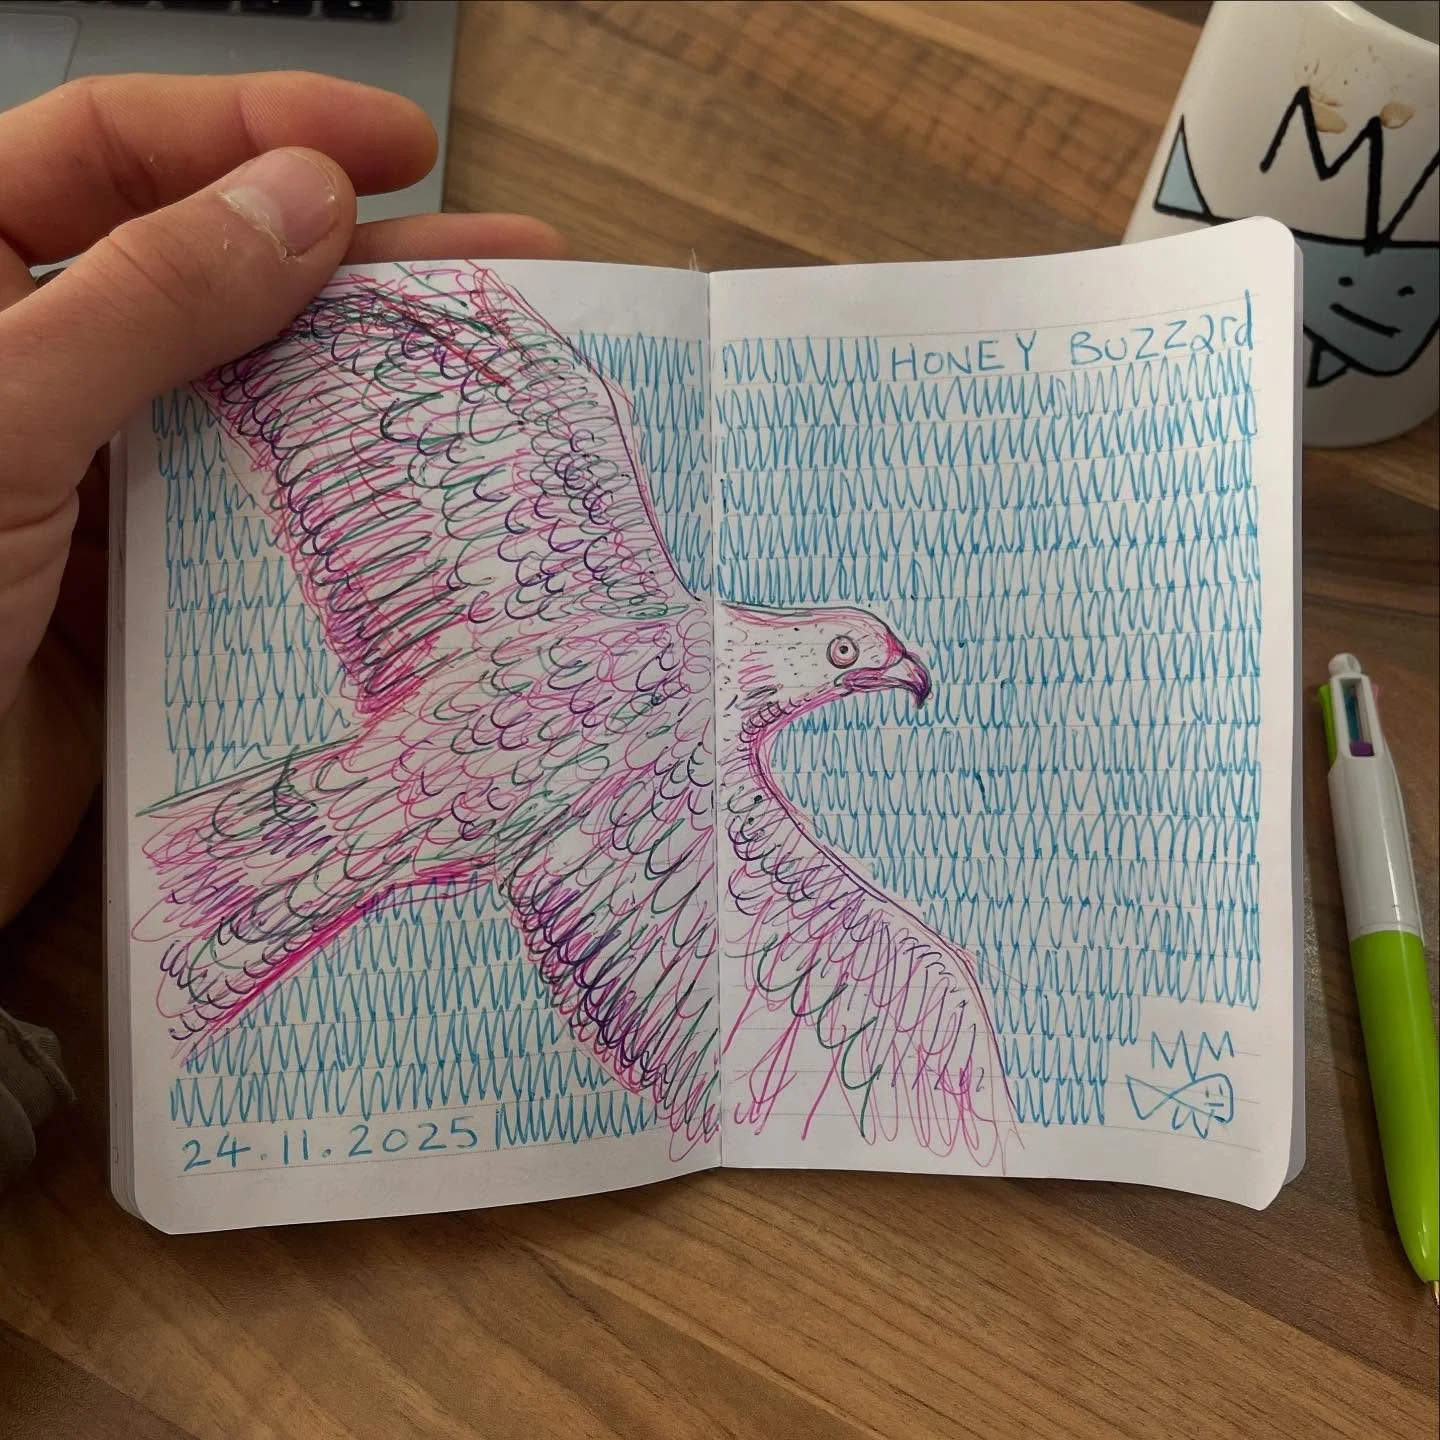 HONEY BUZZard
24.11.2025